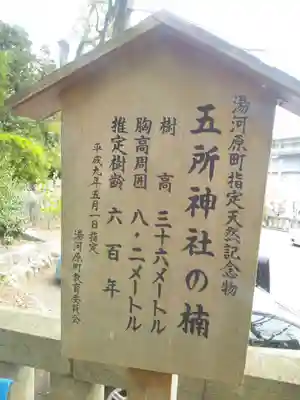 湯河原町指定天然記念物
五所神社の楠
樹高 三十六メートル
胸高周囲 八・二メートル
推定樹齢 六百年
平成九年五月一日指定
湯河原町教育委員会